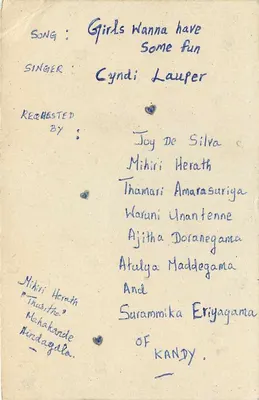 SONG : Girls Wanna have
Some fun
SINGER : Cyndi Lauper
REQUESTED
BY :
Joy De Silva
Mihiri Herath
Thamari Amarasuriya
Waruni Unantenne
Ajitha Doranegama
Atulya Maddegama
And
Surammika Eriyagama
OF
KANDY.
Mihiri Herath
"Thusitha"
Mahakande
Hindagala.